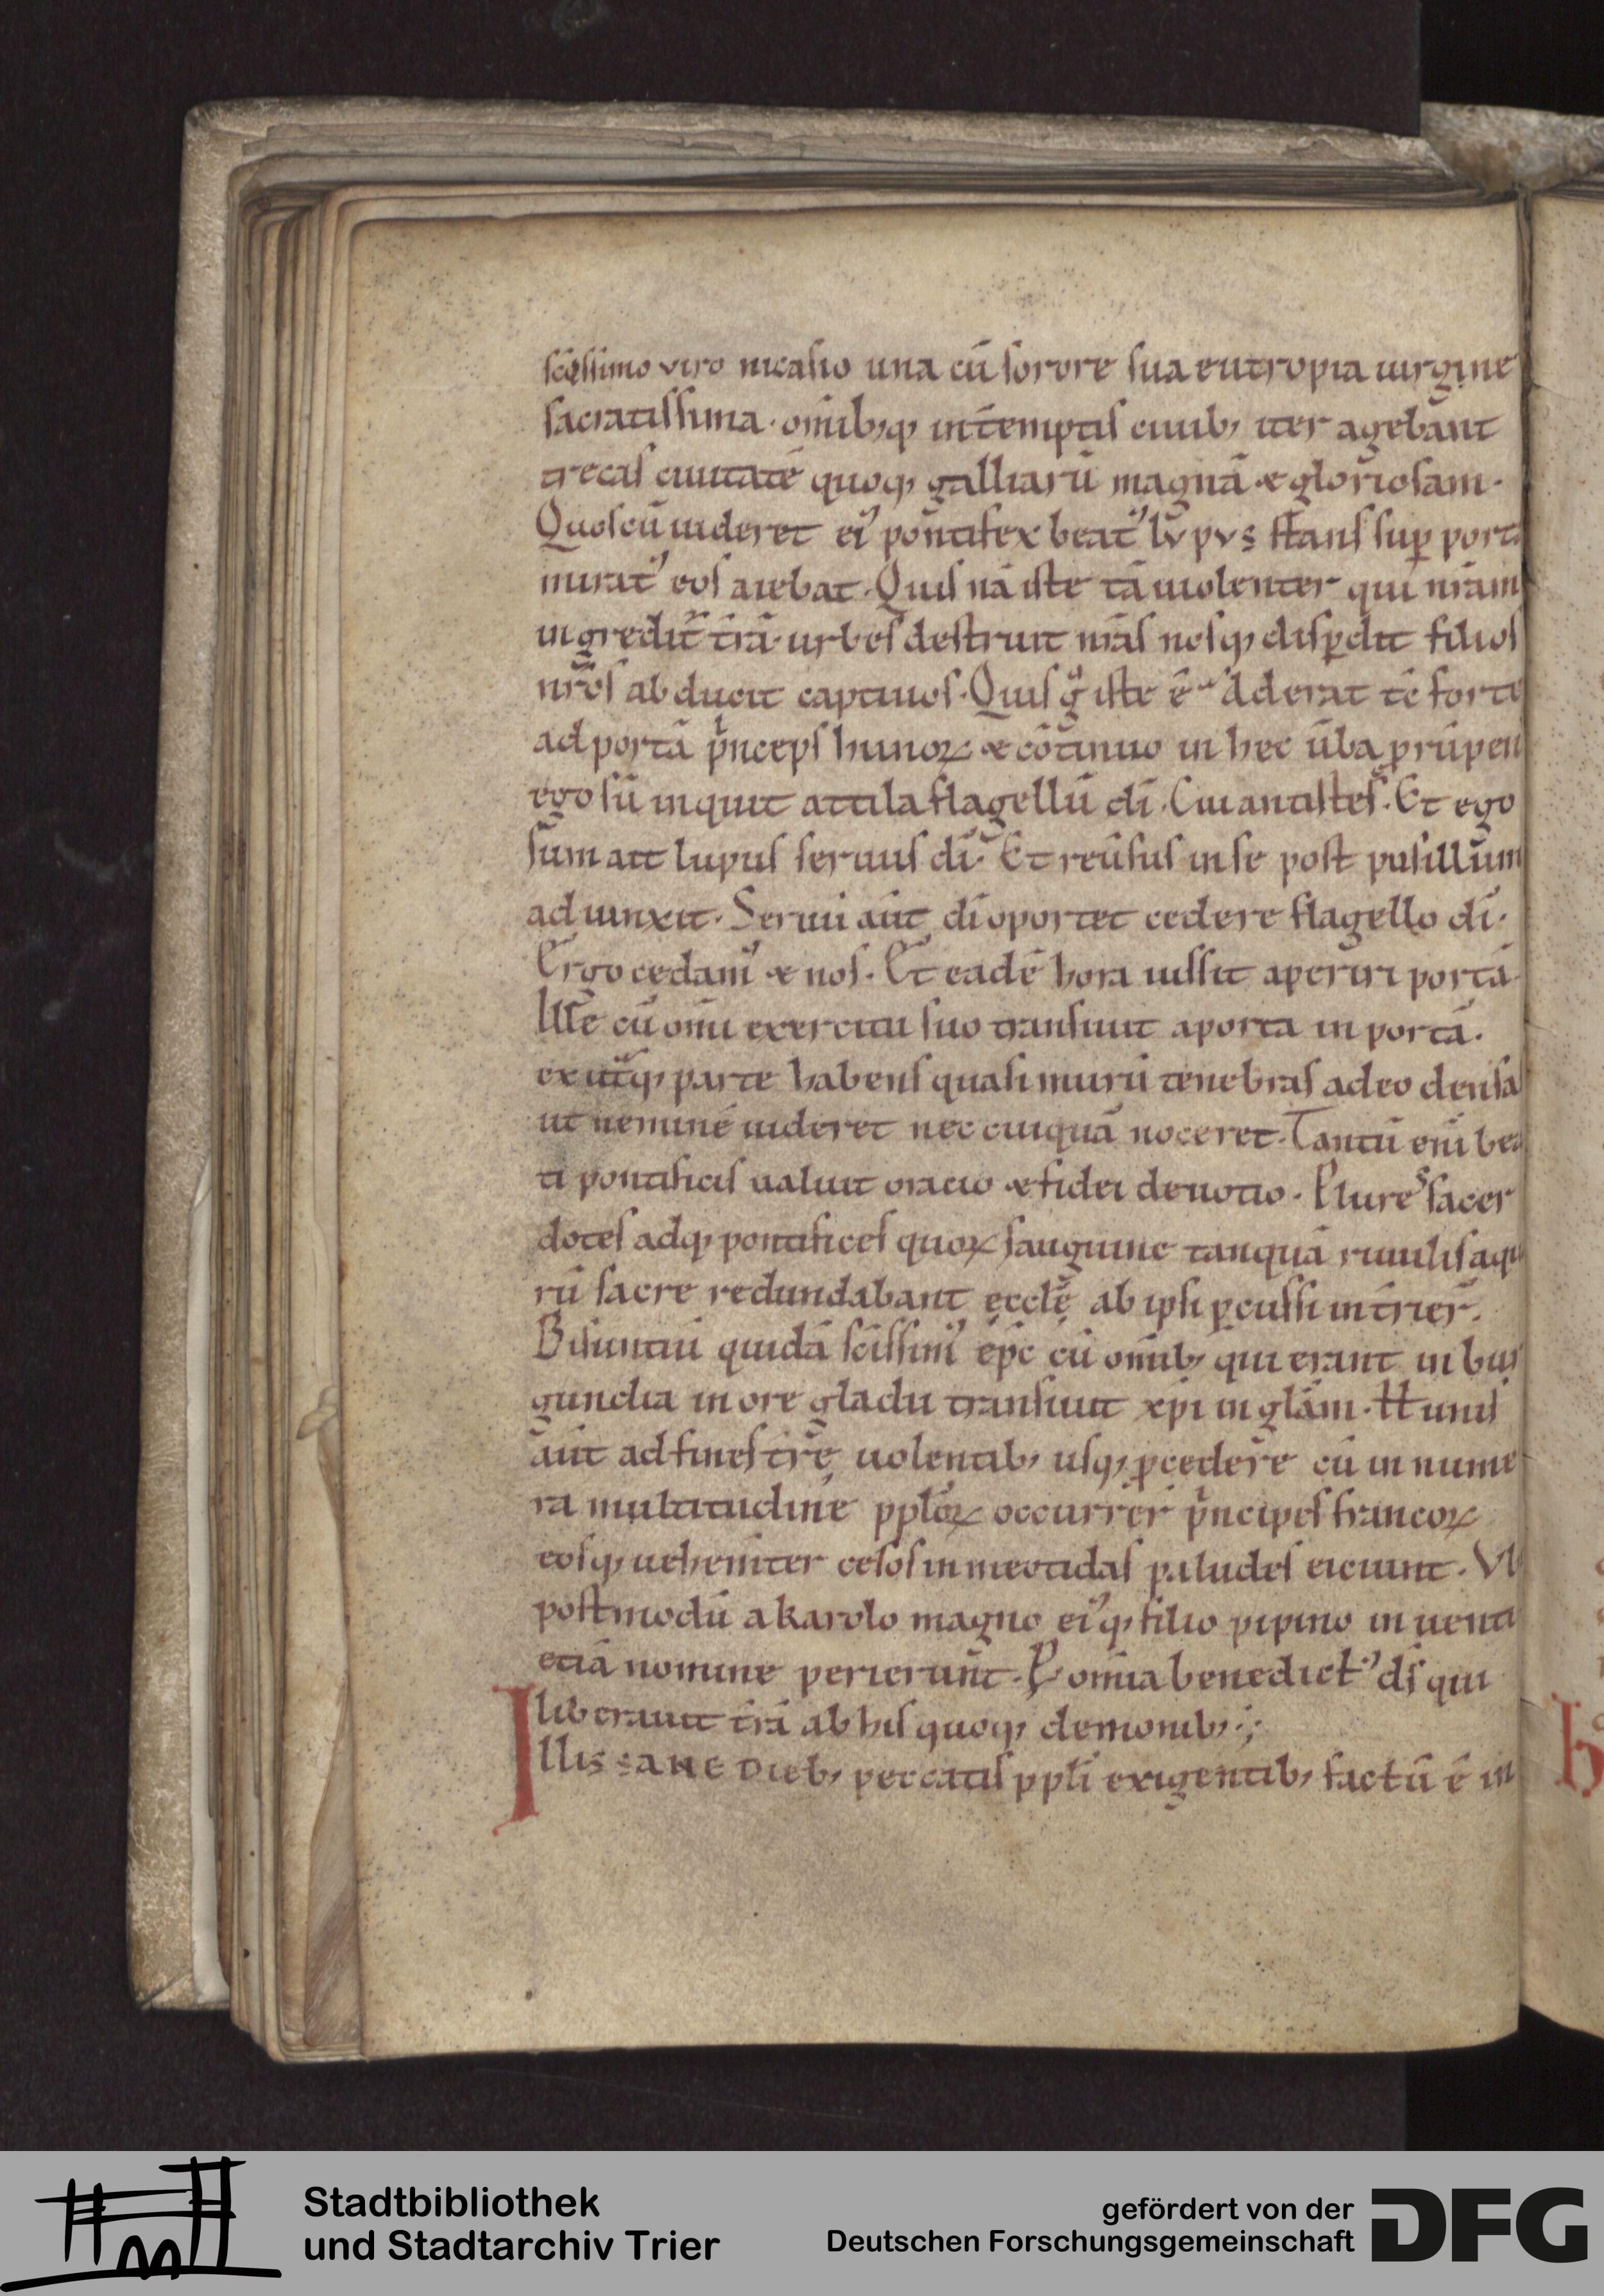 scīssimo viro nicasio una cū sorore sua eutropia uirgine
sacratissima. om̄ib;q; intēptis ciuib; iter agebant
trecas ciuitatē quoq; galliarū magnā & gloriosam.
Quos cū uideret ei' pontifex beat' lvpvs stans sup port
mirat' eos aiebat. Quis nā iste tā uiolenter qui nr̄am
ingredit̄ trā. urbes destruit nr̄as nosq; disꝑdit filios
nr̄os abducit captiuos. Quis g̊ iste ē. Aderat tc̄ forte
ad portā p̊nceps hunoꝝ & cōtinuo in hec ūba prūpen
ego sū inquit attila flagellū dī. Cui antistes. Et ego
sum ait lupus seruus dī. Et reūsus in se post pusillum
adiunxit. Seruū aūt dī oportet cedere flagello dī.
Ergo cedam' & nos. Et eadē hora iussit aperiri portā
Ille cū om̄i exercitu suo transiuit a porta in portā.
ex utq; parte habens quasi murū tenebras adeo densa
ut neminē uideret nec cuiquā noceret. Tantū eni bea
ti pontificis ualuit oracio & fidei deuotio. Plures sacer
dotes adq; pontifices quoꝝ sanguine tanquā riuulis aqu
rū sacre redundabant ęcclē ab ipsi ꝑcussi in trier̄.
Bisuntiū quidā scīssim' ēpc cū om̄ib; qui erant in bur
gundia in ore gladii transiuit xp̄i in glām. Hunis
aūt ad fines trę̄ uolentib; usq; ꝓcedere cū innume
ra multitudine pploꝝ occurrer̄ p̊ncipes francoꝝ
eosq; uehemter cesos in meotidas paludes eiciunt. Vb
postmodū a karolo magno ei'q; filio pipino inuenti
etiā nomine perierunt. P om̄ia benedict' d̄s qui
liberauit trā ab his quoq; demonib;.
Illis sane dieb; peccatis ppli exigentib; factū ē in
Stadtbibliothek
und Stadtarchiv Trier
gefördert von der
Deutschen Forschungsgemeinschaft
DFG